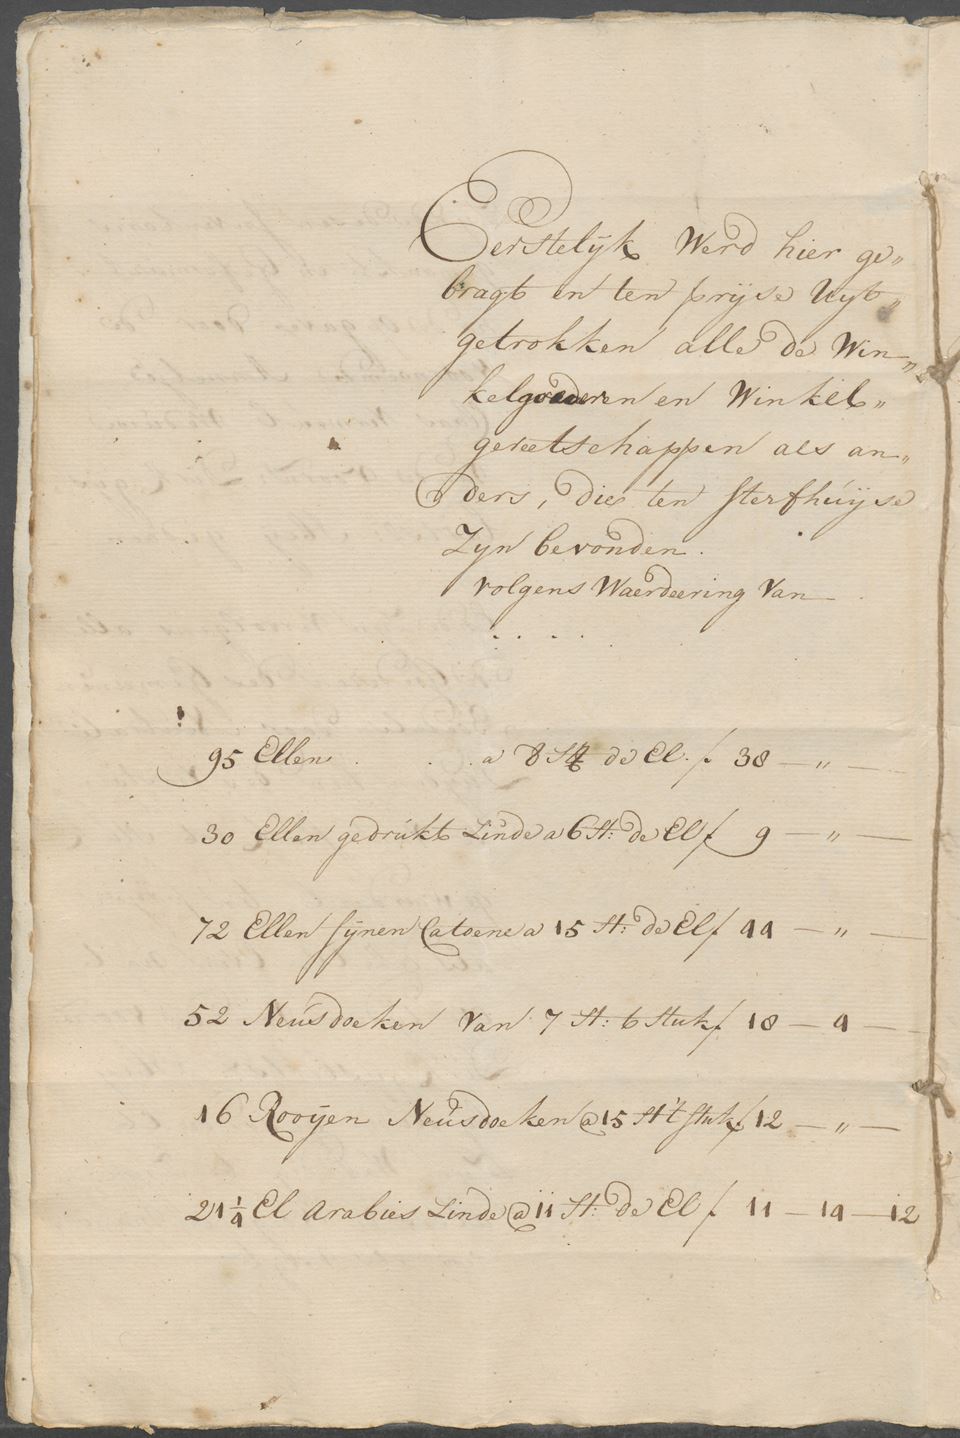 Eerstelijk Werd hier ge„
bragt en ten prijse Uyt„
getrokken alle de Win„
kelgoederen en Winkel„
gereetschappen als an„
ders, die ten sterfhuijse
Zyn bevonden.
volgens Waerdeering Van
. . . .
95 Ellen . . . a 8 St de El. f 38 — „ —
30 Ellen gedrukt Linde a 6 St: de El f 9 — „ —
72 Ellen fijnen Catoene a 15 St: de El f 44 — „ —
52 Neusdoeken Van 7 St: t stuk f 18 — 4 —
16 Rooijen Neusdoeken @ 15 St 't stuk f 12 — „ —
21 1/4 El Arabies Linde @ 11 St: de El f 11 — 14 — 12